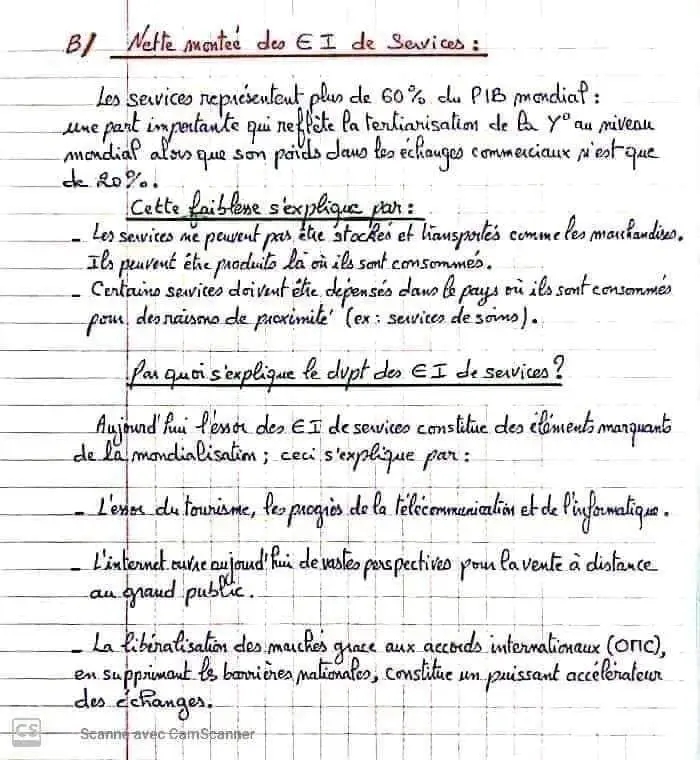 B/ Nette monteé des E I de Services :
Les services représentent plus de 60% du PIB mondial :
une part importante qui reflète la tertiarisation de la Y° au niveau
mondial alors que son poids dans les échanges commerciaux n'est que
de 20%.
Cette faiblesse s'explique par :
- Les services ne peuvent pas être stockés et transportés comme les marchandises.
Ils peuvent être produits là où ils sont consommés.
- Certains services doivent être dépensés dans le pays où ils sont consommés
pour des raisons de proximité (ex : services de soins).
Par quoi s'explique le dvpt des E I de services ?
Aujourd'hui l'essor des E I de services constitue des éléments marquants
de la mondialisation ; ceci s'explique par :
- L'essor du tourisme, les progrès de la télécommunication et de l'informatique.
- L'internet ouvre aujourd'hui de vastes perspectives pour la vente à distance
au grand public.
- La libéralisation des marchés grace aux accords internationaux (OMC),
en supprimant les barrières nationales, constitue un puissant accélérateur
des échanges.
CS Scanné avec CamScanner